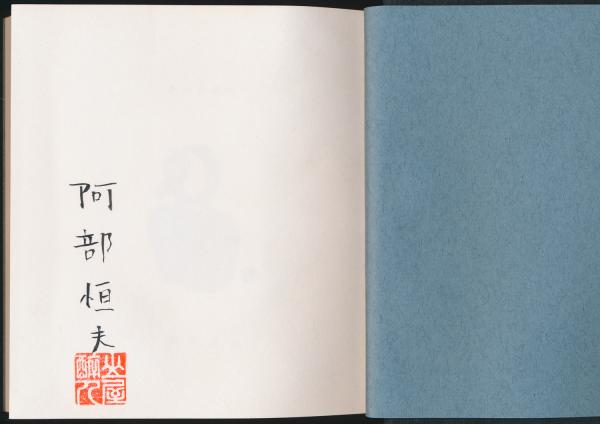 阿部恒夫